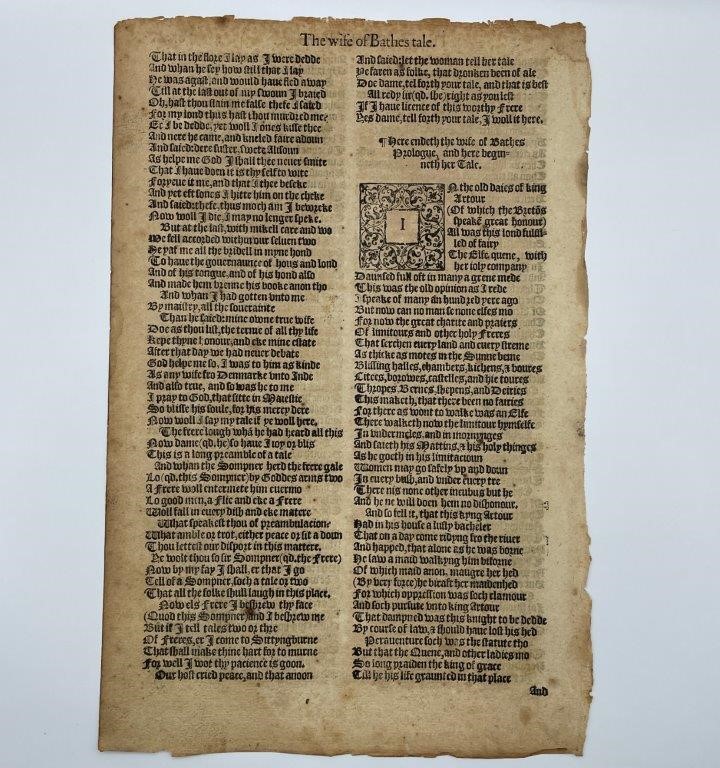 The wife of Bathes tale.
That in the flore I lay as I were dedde
And whan he sey how still that I lay
He was agast, and would haue fled away
Till at the last out of my swoun I braied
Oh, hast thou slain me false thefe I saied
For my lond thus hast thou murdred me?
Er I be dedde, yet woll I ones kisse thee
And nere he came, and kneled faire adoun
And saied: dere suster, swete Alisoun
As helpe me God I shall thee neuer smite
That I haue doen it is thy self to wite
Foryeue it me, and that I thee beseke
And yet eft sones I hitte him on the cheke
And saied: thefe, thus moch am I bewreke
Now woll I die, I may no lenger speke.
But at the last, with mikell care and wo
We fell accorded within our seluen two
He yaf me all the bridell in myne hond
To haue the gouernaunce of hous and lond
And of his tongue, and of his hond also
And made hem brenne his booke anon tho
And whan I had gotten vnto me
By maistry, all the soueraintie
Than he saied: mine owne true wife
Doe as thou list, the terme of all thy life
Kepe thyne honour, and eke mine estate
After that day we had neuer debate
God helpe me so, I was to him as kinde
As any wife fro Denmarke vnto Inde
And also true, and so was he to me
I pray to God, that sitte in Maiestie
So blisse his soule, for his mercy dere
Now woll I say my tale if ye woll here.
The frere lough whā he had heard all this
Now dame (qd. he) so haue I ioy or blis
This is a long preamble of a tale
And whan the Sompner herd the frere gale
Lo (qd. this Sompner) by Goddes arms two
A Frere woll entermete him euermo
Lo good men, a flie and eke a Frere
Woll fall in euery dish and eke matere
What speakest thou of preambulacion?
What amble or trot, either peace or sit a doun
Thou lettest our disport in this mattere.
Ye wolt thou so sir Sompner (qd. the Frere)
Now by my fay I shall, er that I go
Tell of a Sompner, soch a tale or two
That all the folke shull laugh in this place.
Now els Frere I beshrew thy face
(Quod this Sompner) and I beshrew me
But if I tell tales two or thre
Of Freres, er I come to Sittyngburne
That shall make thine hart for to murne
For well I wot thy pacience is goon.
Our host cried peace, and that anoon
And saied: let the woman tell her tale
Ye faren as folke, that dronken been of ale
Doe dame, tel forth your tale, and that is best
All redy sir (qd. she) right as you lest
If I haue licence of this worthy Frere
Yes dame, tell forth your tale, I woll it here.
¶ Here endeth the wife of Bathes
Prologue, and here begin-
neth her Tale.
IN the old daies of king
Artour
(Of which the Bretōs
speake great honour)
All was this lond fulfil-
led of fairy
The Elfe quene, with
her ioly company
Daunsed full oft in many a grene mede
This was the old opinion as I rede
I speake of many an hundred yere ago
But now can no man se none elfes mo
For now the great charite and praiers
Of limitours and other holy Freres
That serchen euery land and euery streme
As thicke as motes in the Sunne beme
Blissing halles, chambers, kichens, & boures
Citees, borowes, castelles, and hie toures
Thropes, Bernes, shepens, and Deiries
This maketh, that there been no fairies
For there as wont to walke was an Elfe
There walketh now the limitour hymselfe
In vndermeles, and in mornynges
And saieth his Mattins, & his holy thinges
As he goeth in his limitacioun
Women may go safely vp and doun
In euery bush, and vnder euery tre
There nis none other incubus but he
And he will doen hem no dishonour.
And so fell it, that this kyng Artour
Had in his house a lusty bacheler
That on a day come ridyng fro the riuer
And happed, that alone as he was borne
He saw a maid walkyng him biforne
Of which maid anon, maugre her hed
(By very force) he biraft her maidenhed
For which oppression was soch clamour
And soch pursute vnto king Artour
That dampned was this knight to be dedde
By course of law, & should haue lost his hed
Perauenture soch was the statute tho
But that the Quene, and other ladies mo
So long praiden the king of grace
Till he his life graunted in that place
And